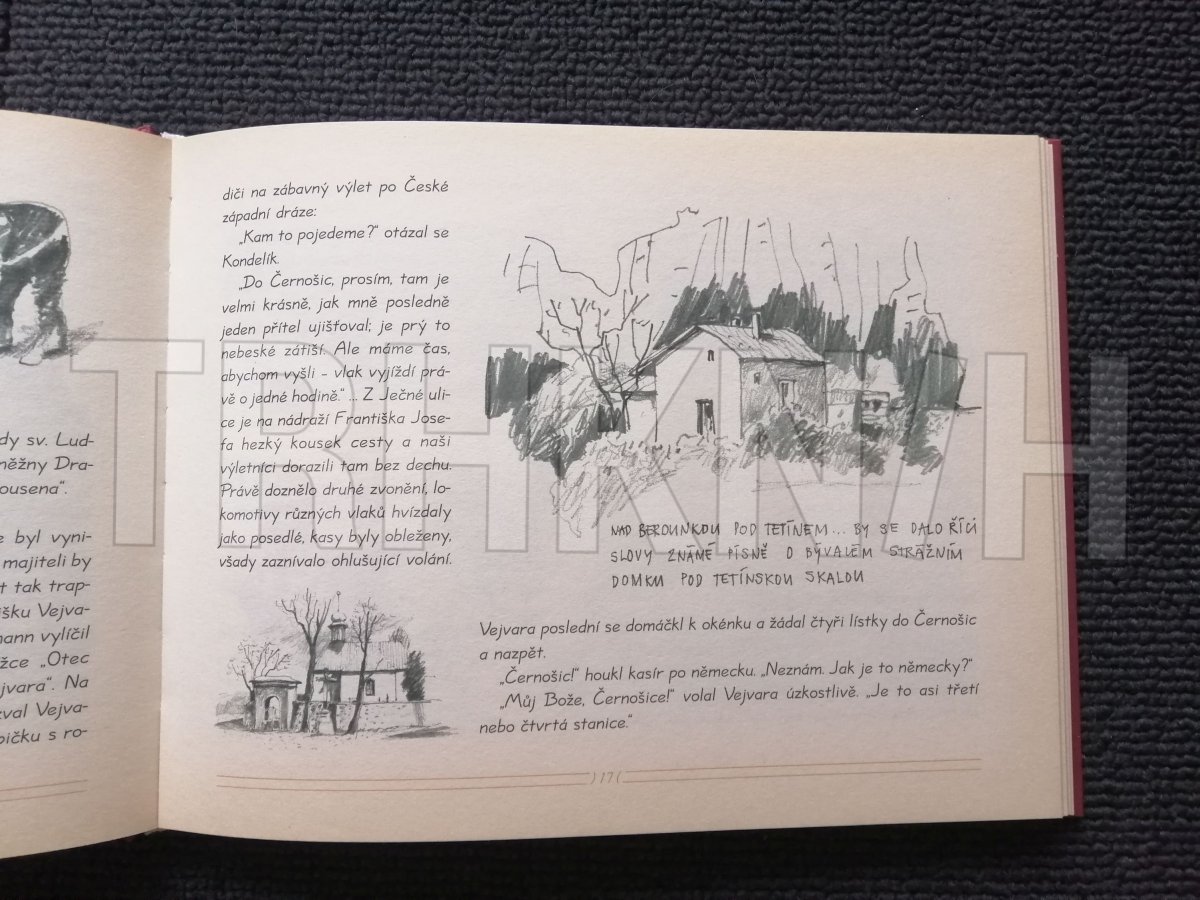 dy sv. Lud-
něžny Dra-
ousena“.
e byl vyni-
majiteli by
t tak trap-
išku Vejva-
mann vylíčil
žce „Otec
jvara“. Na
zval Vejva-
bičku s ro-
diči na zábavný výlet po České
západní dráze:
„Kam to pojedeme?“ otázal se
Kondelík.
„Do Černošic, prosím, tam je
velmi krásně, jak mně posledně
jeden přítel ujišťoval; je prý to
nebeské zátiší. Ale máme čas,
abychom vyšli – vlak vyjíždí prá-
vě o jedné hodině.“ ... Z Ječné uli-
ce je na nádraží Františka Jose-
fa hezký kousek cesty a naši
výletníci dorazili tam bez dechu.
Právě doznělo druhé zvonění, lo-
komotivy různých vlaků hvízdaly
jako posedlé, kasy byly obleženy,
všady zaznívalo ohlušující volání.
NAD BEROUNKOU POD TETÍNEM... BY SE DALO ŘÍCI
SLOVY ZNÁMÉ PÍSNĚ O BÝVALÉM STRÁŽNÍM
DOMKU POD TETÍNSKOU SKALOU
Vejvara poslední se domáčkl k okénku a žádal čtyři lístky do Černošic
a nazpět.
„Černošic!“ houkl kasír po německu. „Neznám. Jak je to německy?“
„Můj Bože, Černošice!“ volal Vejvara úzkostlivě. „Je to asi třetí
nebo čtvrtá stanice.“
)17(
TRHKNIH